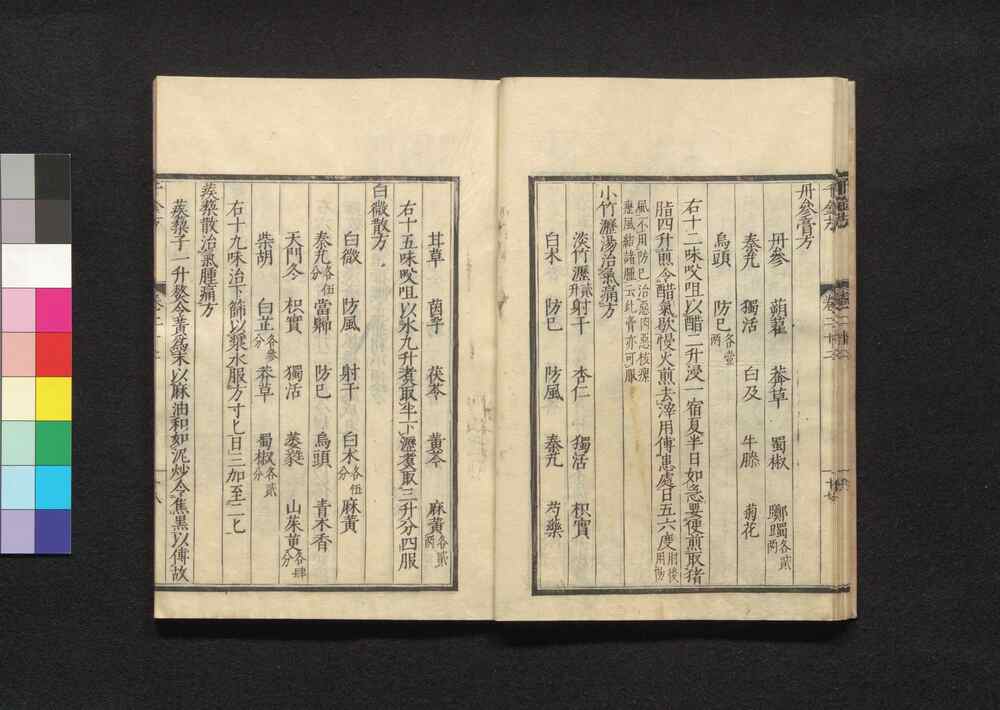 丹參膏方
丹參 蒴藋 莽草 蜀椒 躑躅各貳兩
秦艽 獨活 白及 牛膝 菊花
烏頭 防已各壹兩
右十二味㕮咀以醋二升浸一宿夏半日如急要便煎取猪
脂四升煎令醋氣歇慢火煎去滓用傅患處日五六度
風不用防已治惡肉惡核瘰
癧風結諸腫云此膏亦可服
小竹瀝湯治氣痛方
淡竹瀝貳升 射干 杏仁 獨活 枳實
白术 防已 防風 秦艽 芍藥
甘草 茵芋 茯苓 黃芩 麻黃各貳兩
右十五味㕮咀以水九升煮取半下瀝煮取三升分四服
白薇散方
白薇 防風 射干 白术各伍分 麻黃
秦艽各伍分 當歸 防已 烏頭 青木香
天門冬 枳實 獨活 葳蕤 山茱萸各肆分
柴胡 白芷各參分 莽草 蜀椒各貳分
右十九味治下篩以漿水服方寸匕日三加至二匕
蒺䔧散治氣腫痛方
蒺䔧子一升熬令黃爲末以麻油和如泥炒令焦黑以傅故